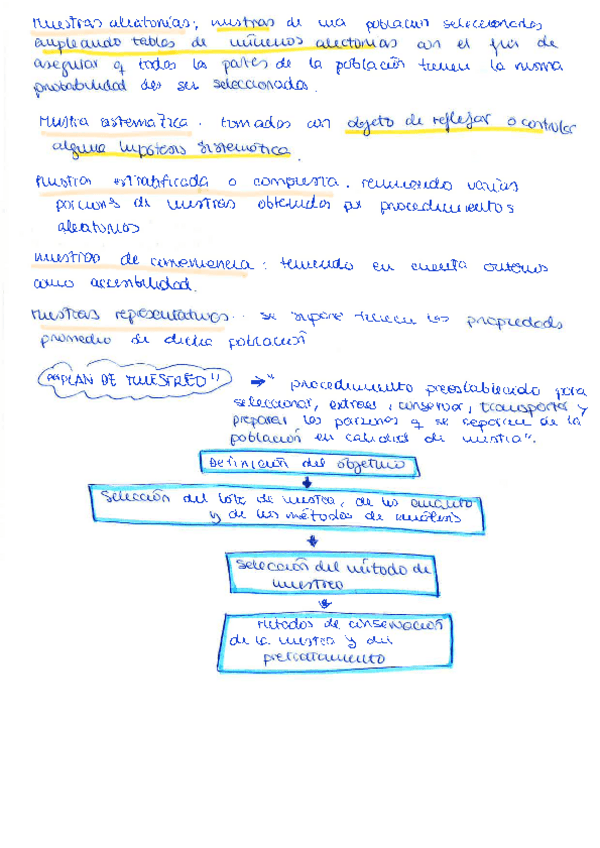 Muestras aleatorias; muestras de una población seleccionadas
empleando tablas de números aleatorios con el fin de
asegurar q todas las partes de la población tienen la misma
probabilidad de ser seleccionadas.
Muestra sistemática. tomadas con objeto de reflejar o controlar
alguna hipótesis sistemática.
Muestra estratificada o compuesta. reuniendo varias
porciones de muestras obtenidas por procedimientos
aleatorios
muestras de conveniencia: teniendo en cuenta criterios
como accesibilidad.
Muestras representativas. se supone tienen las propiedades
promedio de dicha población
PLAN DE MUESTREO" → " procedimiento preestablecido para
seleccionar, extraer, conservar, transportar y
preparar las porciones q se separan de la
población en calidad de muestra".
Definición del objetivo
Selección del lote de muestra, de los
y de los métodos de análisis
Selección del método de
muestreo
Métodos de conservación
de la muestra y del
pretratamiento